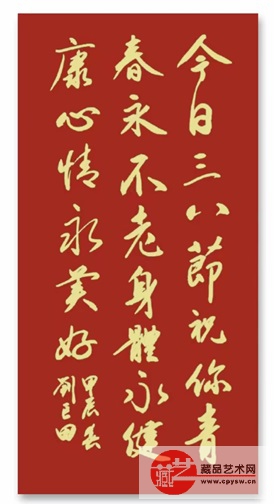 今日三八節祝你青
春永不老身體永健
康心情永美好
甲辰春
劉已田
藏艺
藏品艺术网
www.cpysw.cn